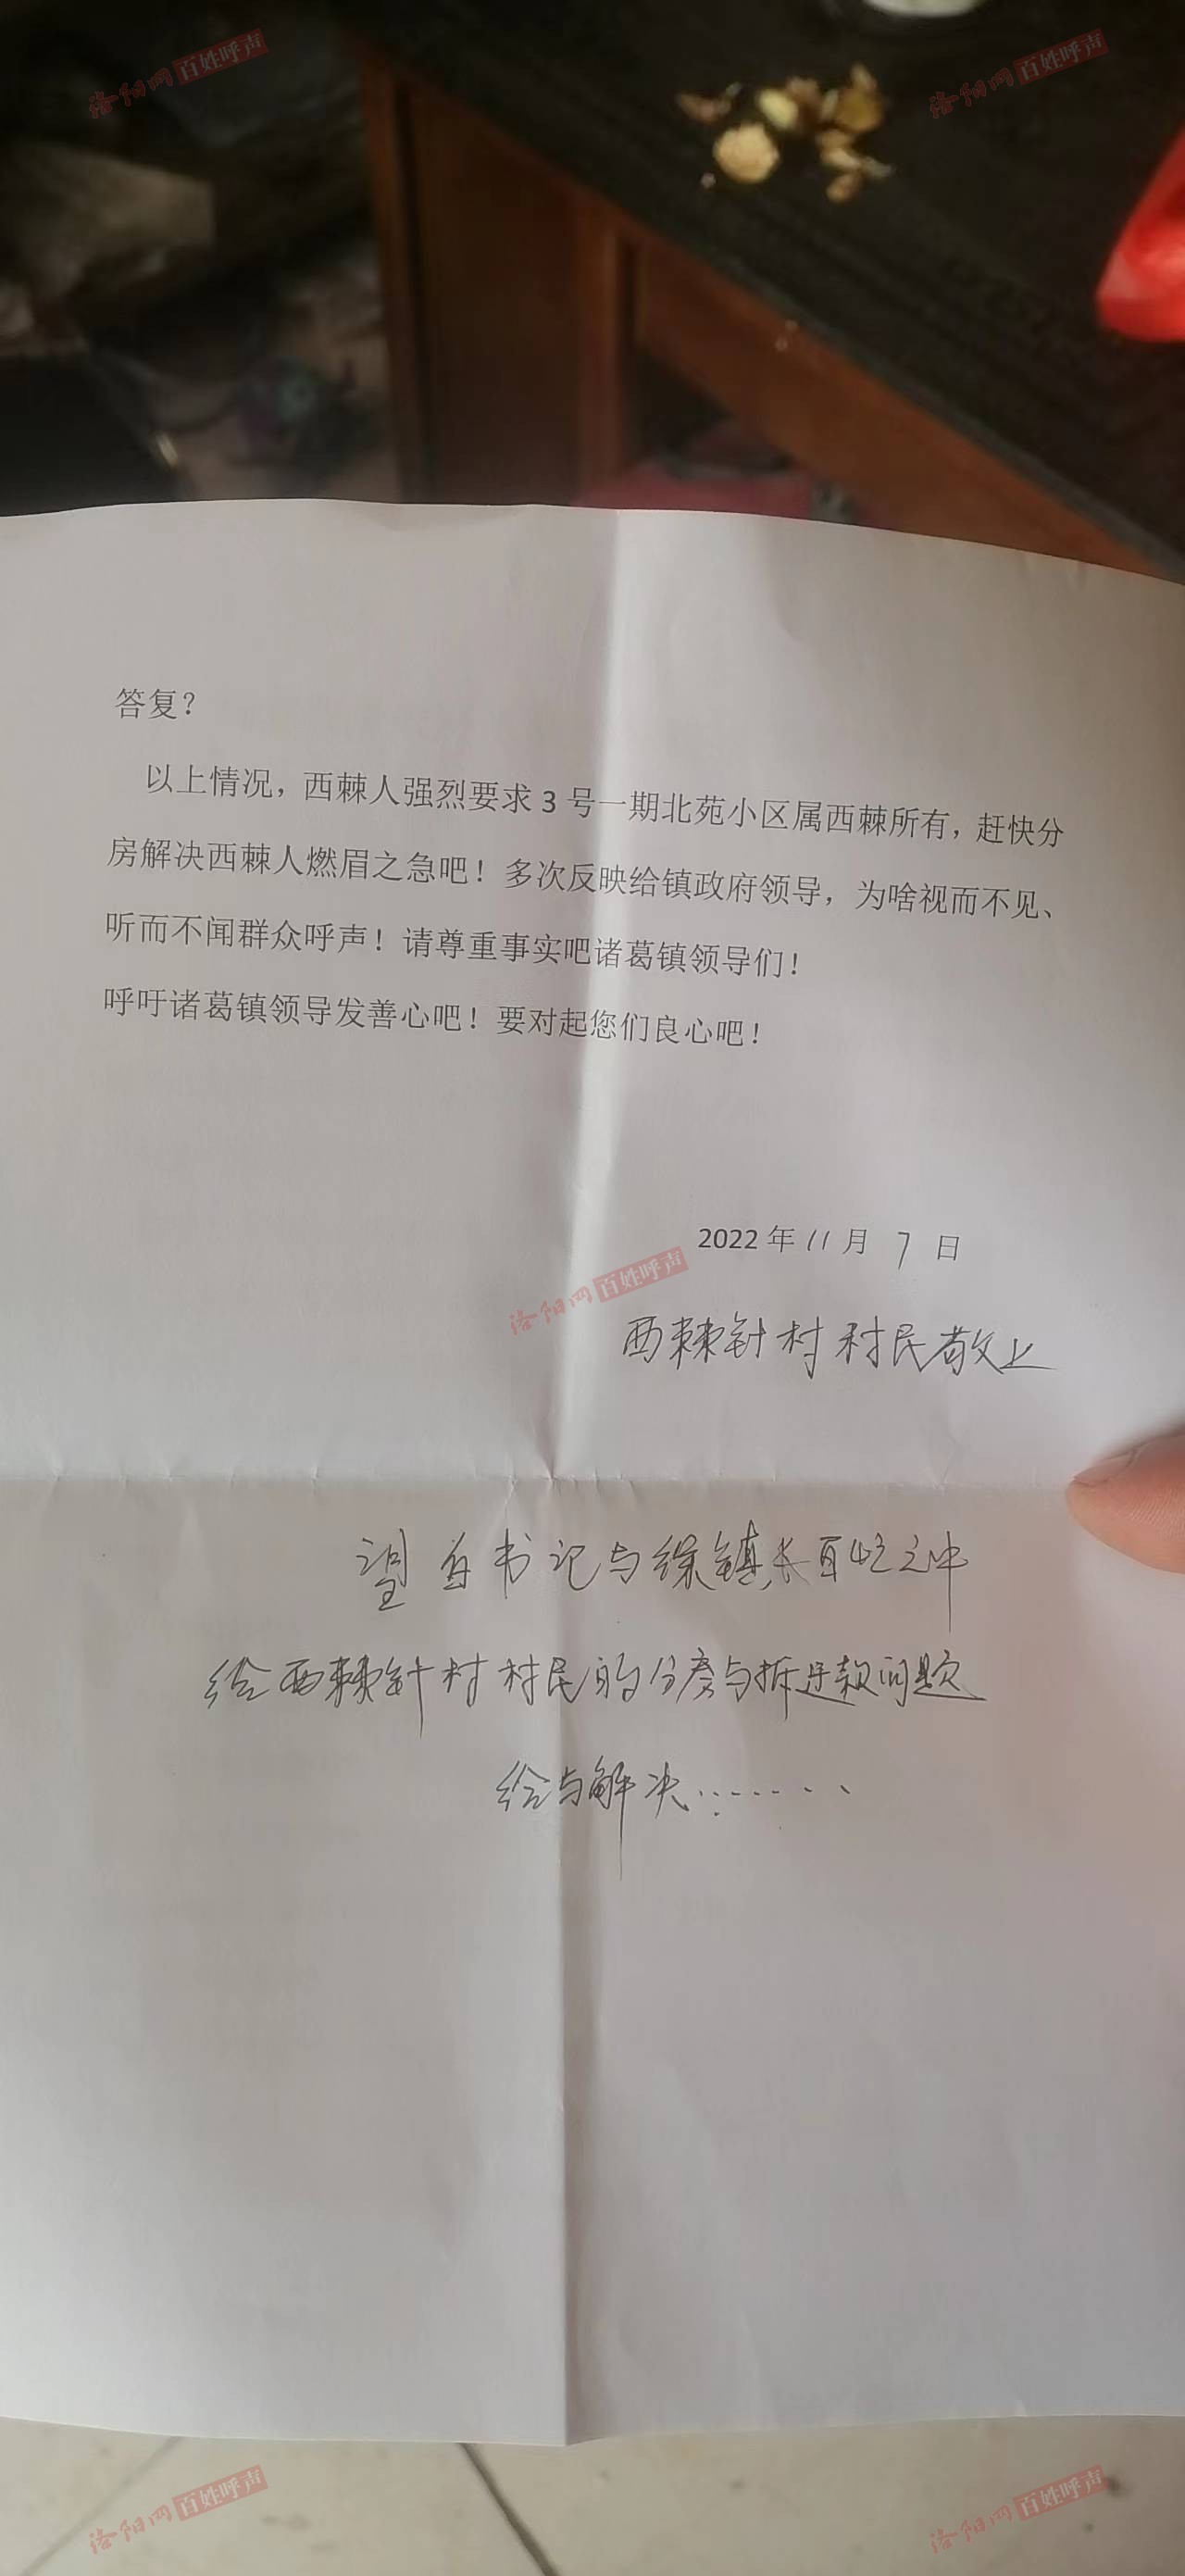 洛阳网 百姓呼声
洛阳网 百姓呼声
答复？
以上情况，西棘人强烈要求 3 号一期北苑小区属西棘所有，赶快分
房解决西棘人燃眉之急吧！多次反映给镇政府领导，为啥视而不见、
听而不闻群众呼声！请尊重事实吧诸葛镇领导们！
呼吁诸葛镇领导发善心吧！要对起您们良心吧！
2022 年 11 月 7 日
洛阳网 百姓呼声
西棘针村村民敬上
望 书记与 镇长百忙之中
给西棘针村村民的分房与拆迁款问题
给与解决.......
洛阳网 百姓呼声
洛阳网 百姓呼声